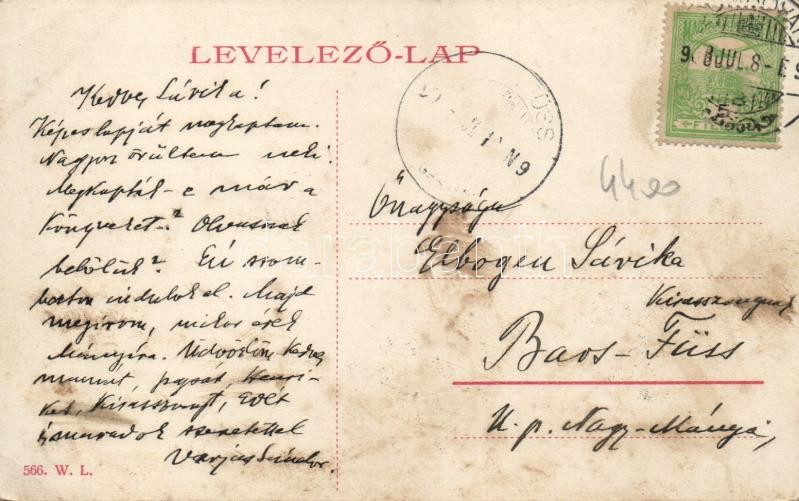 LEVELEZŐ-LAP
Kedves Sárika!
Képeslapját megkaptam.
Nagyon örültem neki.
Megkapták-e már a
könyveket? Olvasnak
belőlük? Én szom-
baton indulok el. Majd
megírom, mikor érek
Mányára. Üdvözlöm kedves
mamát, papát, Henri-
ket, Kisasszonyt,
és maradok szeretettel
Varjas Sándor.
566. W. L.
908 JUL 8
4400
Őnagysága
Elbogen Sárika
Kisasszonynak
Bars-Füss
U. p. Nagy-Mánya